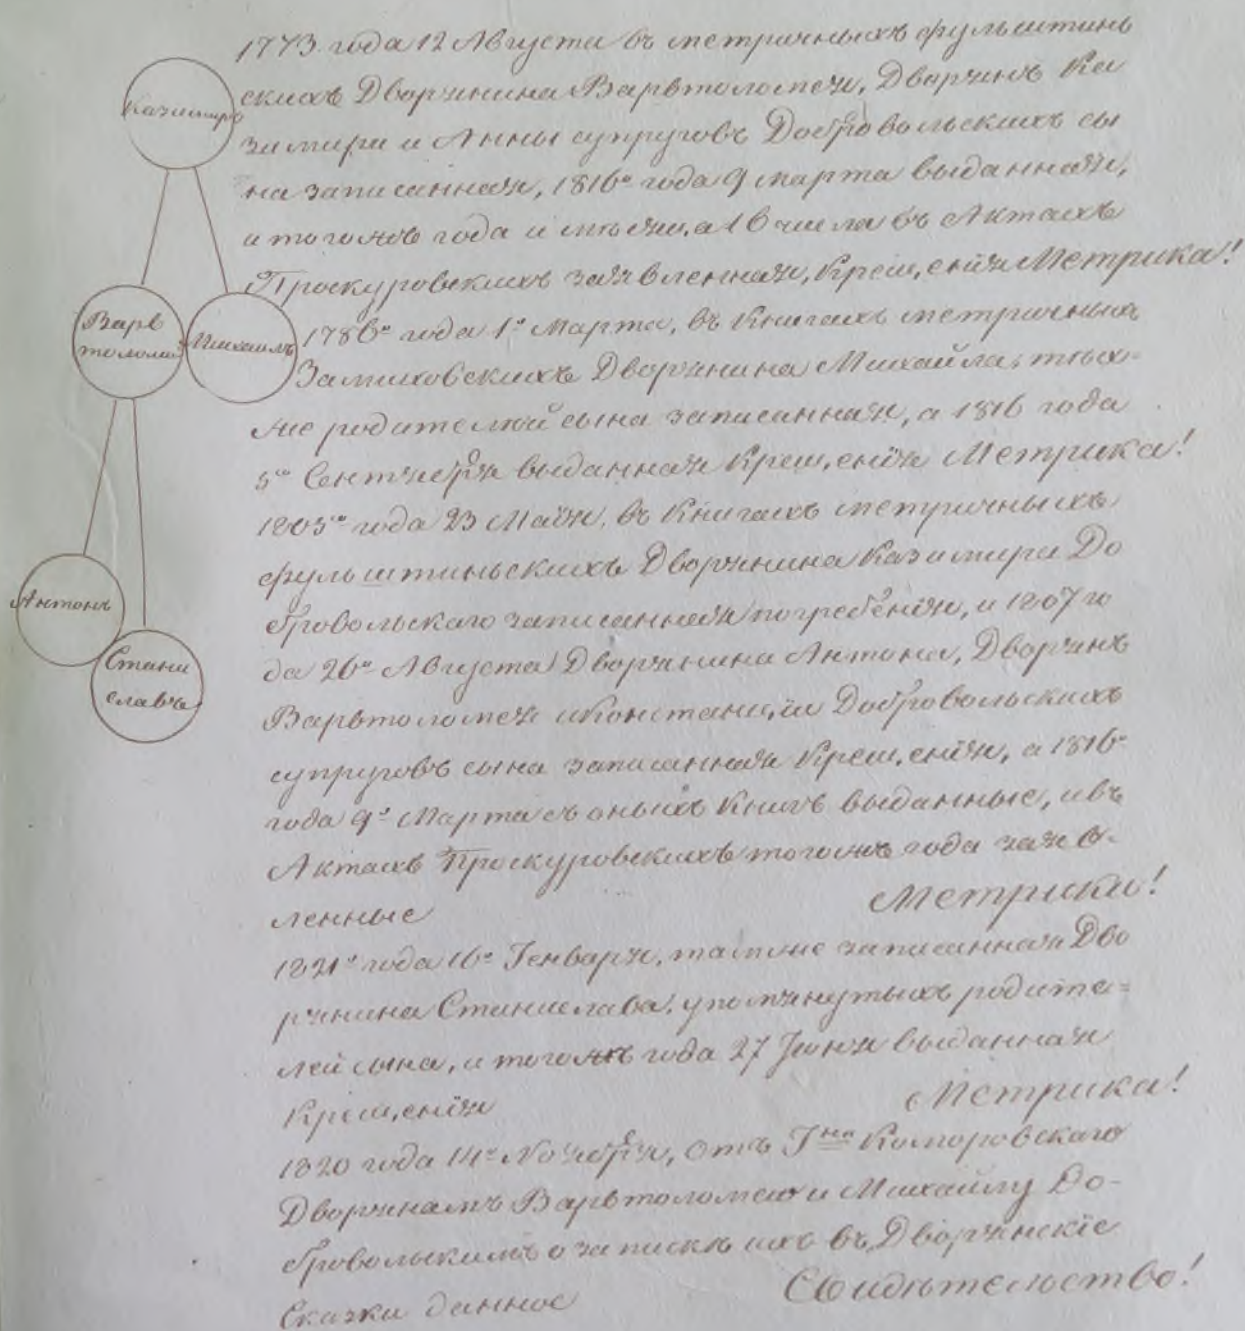 Казимиръ
Варѳ
толомей
Михаилъ
Антонъ
Стани
славъ
1773. года 12 Августа въ метричныхъ фульштинь
скихъ Дворянина Варѳтоломея, Дворянъ Ка
зимира и Анны супруговъ Добровольскихъ сы
на записанная, 1816го года 9 марта выданная,
и тогожъ года и мѣсяца 16 числа въ Актахъ
Проскуровскихъ заявленная, Крещенія Метрика!
1786го года 1го Марта, въ Книгахъ метричныхъ
Замиховскихъ Дворянина Михайла, тѣхъ
же родителей сына записанная, а 1816 года
5го Сентября выданная Крещенія Метрика!
1805го года 23 Маія, въ Книгахъ метричныхъ
фульштинскихъ Дворянина Казимира До
бровольскаго записанная погребенія, и 1807 го
да 26го Августа Дворянина Антона, Дворянъ
Варѳтоломея и Констанціи Добровольскихъ
супруговъ сына записанная Крещенія, а 1816го
года 9го Марта съ оныхъ Книгъ выданные, и въ
Актахъ Проскуровскихъ тогожъ года заяв-
ленные Метрики!
1821го года 16го Генваря, тамже записанная Дво
рянина Станислава, упомянутыхъ родите=
лей сына, и тогожъ года 27 Іюня выданная
Крещенія Метрика!
1820 года 14го Ноября, отъ Гна Коморовскаго
Дворянамъ Варѳтоломею и Михайлу До-
бровольскимъ о запискѣ ихъ въ Дворянскіе
Сказки данное Свидѣтельство!